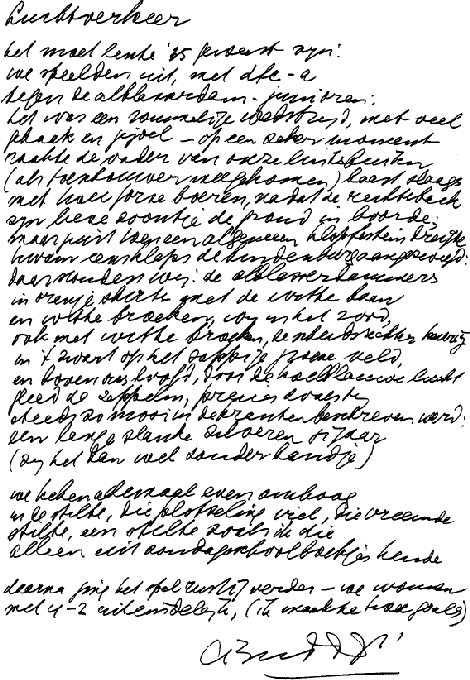 Luchtverkeer

het moet lente '35 geweest zijn:
we speelden uit, met dfc-a
tegen de alblasserdam-junioren:
het was een rommelige wedstrijd, met veel
en op een zeker moment
raakte de vader van onze linksbuiten
(als toeschouwer meegekomen) haast slaags
met twee forse boeren, nadat de rechtsback
zijn lieve zoontje de grond in boorde;
maar juist toen een algemeen
kwam eensklaps de hindenburg aangezweefd:
daar stonden wij: de alblasserdammers
in oranje shirts met de witte baan
en witte broeken, wij in het rood,
ook met witte broeken, de scheidsrechter
in 't zwart op het sappige groene veld,
en boven ons hoofd, door de hemelsblauwe lucht
gleed de zeppelin, precies zoals hij
steeds zo mooi in de kranten beschreven werd:
een lange slanke zilveren sigaar
(zij het dan wel zonder bandje)

we keken allemaal even omhoog
in de stilte, die plotseling viel, die vreemde
stilte, een stilte zoals ik die
alleen uit zondagsschoolboekjes kende

daarna ging het spel rustig verder – we wonnen
met 4-2 uiteindelijk, (ik maakte twee goals)